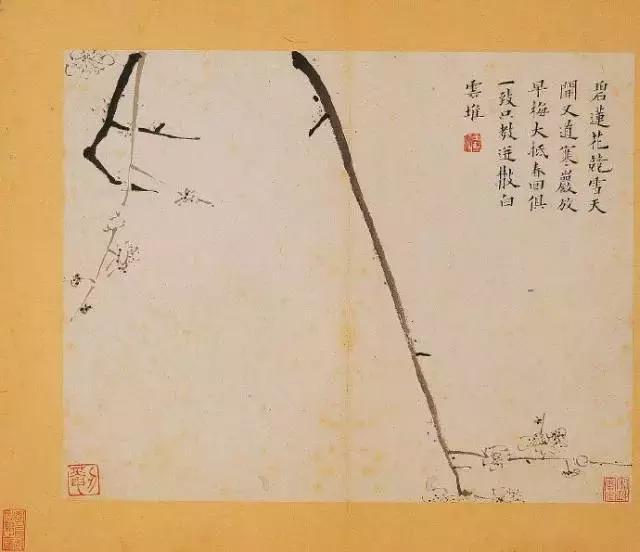 碧蓮花雪天
開又道寒巖放
早梅大抵春回俱
一致只教迸散白
雲堆